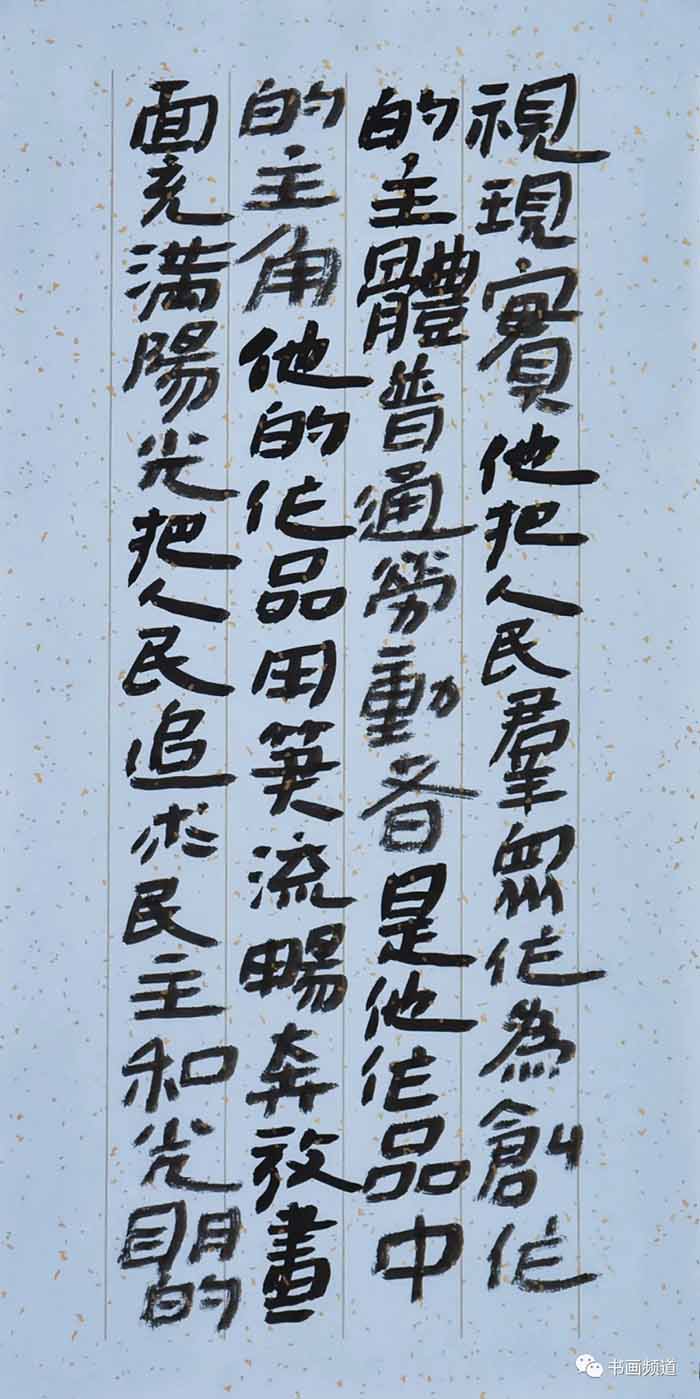 視現實他把人民羣眾作為創作
的主體普通勞動者是他作品中
的主角他的作品用筆流暢奔放畫
面充滿陽光把人民追求民主和光明的
书画频道